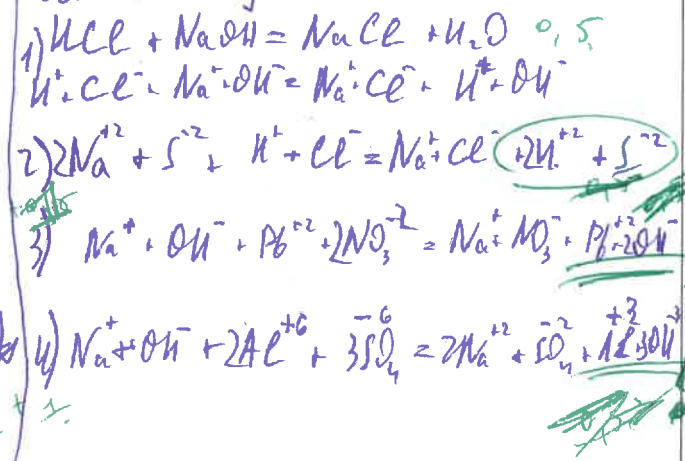 1) HCl + NaOH = NaCl + H₂O 0,5
H⁺ + Cl⁻ + Na⁺ + OH⁻ = Na⁺ + Cl⁻ + H⁺ + OH⁻
2) 2Na⁺² + S⁻² + H⁺ + Cl⁻ = Na⁺ + Cl⁻ + 2H⁺² + S⁻²
3) Na⁺ + OH⁻ + Pb⁺² + 2NO₃⁻² = Na⁺ + NO₃⁻ + Pb⁺² + 2OH⁻
4) Na⁺ + OH⁻ + 2Al⁺⁶ + 3SO₄⁻⁶ = 2Na⁺² + SO₄⁻² + Al⁺³ + 3OH⁻³
+ 1